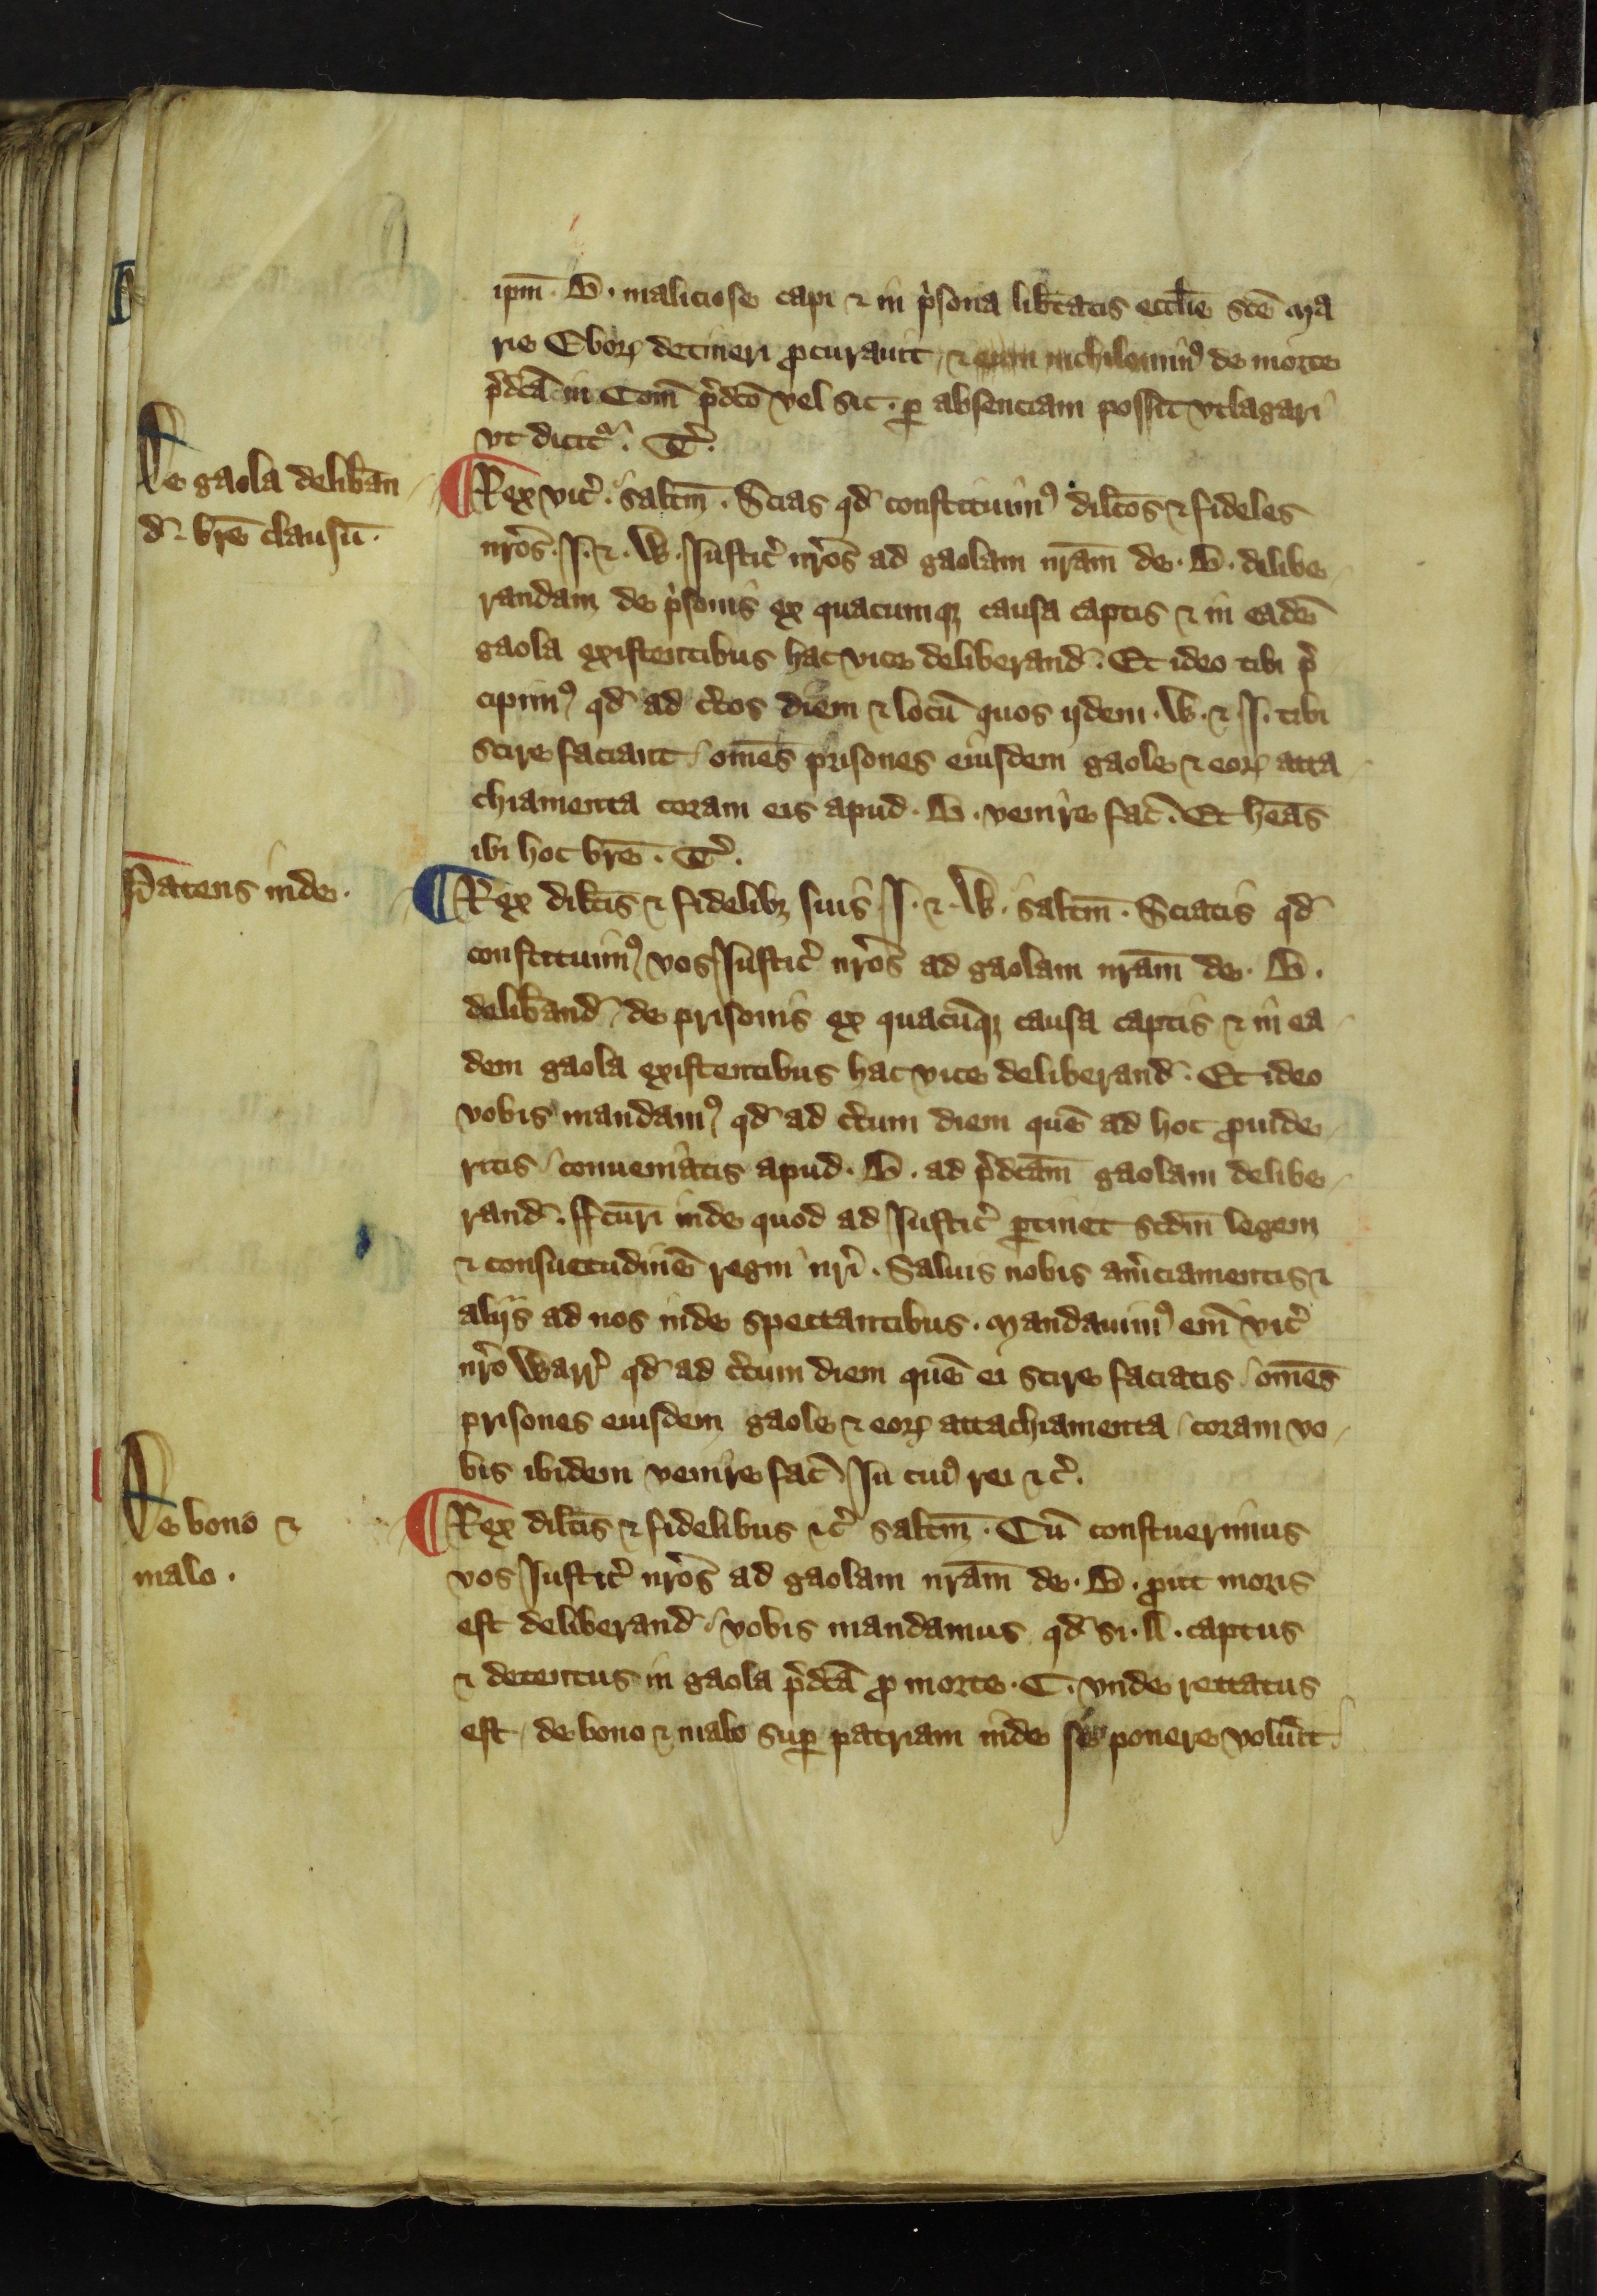 ipm̄ · B · maliciose capi ⁊ in p̓sona lib̓tatis eccl̓ie sc̄e Ma
rie Eboꝝ detineri ꝓcurauit / ⁊ eum nichilomin᷒ de morte
p̓dc̄a in Com̄ p̓dc̄o vel sic · ꝑ absenciam possit vtlagari
vt dicit᷑ · T̓.
De gaola delib̓an
d̄ · br̄e clausū ·
¶ Rex vic̓ · salt̄m · Scias qd̄ constituim᷒ dilc̄os ⁊ fideles
nr̄os · I · ⁊ · W · Iustic̓ nr̄os ad gaolam nr̄am de · B · delibe
randam de p̓sonis ex quacumqꝫ causa captis ⁊ in eadē
gaola existentibus hac vice deliberand̄ · Et ideo tibi p̓
cipim᷒ qd̄ ad c̓tos diem ⁊ locū quos ijdem · W · ⁊ · I · tibi
scire faciant / om̄es prisones eiusdem gaole ⁊ eoꝝ atta
chiamenta coram eis apud · B · venire fac̄ · Et hēas
ibi hoc br̄e · T̓.
Patens inde ·
¶ Rex dilc̄is ⁊ fidelibꝫ suis · I · ⁊ · W · salt̄m · Sciatis qd̄
constituim᷒ vos Iustic̓ nr̄os ad gaolam nr̄am de · B ·
delib̓and̄ / de prisonis ex quacūqꝫ causa captis ⁊ in ea
dem gaola existentibus hac vice deliberand̄ · Et ideo
vobis mandam᷒ qd̄ ad c̓tum diem quē ad hoc ꝓuide
ritis / conueniatis apud · B · ad p̓dc̄am gaolam delibe
rand̄ · ffc̄uri inde quod ad Iustic̓ ꝑtinet scdm̄ legem
⁊ consuetudinē regni nr̄i · Saluis nobis am̓ciamentis ⁊
alijs ad nos inde spectantibus · Mandauim᷒ em̄ vic̓
nr̄o Warr̓ qd̄ ad c̓tum diem quē ei scire faciatis / om̄es
prisones eiusdem gaole ⁊ eoꝝ attachiamenta / coram vo
bis ibidem venire fac̄ · In cui᷒ rei ⁊c̓.
De bono ⁊
malo ·
¶ Rex dilc̄is ⁊ fidelibus ⁊c̓ salt̄m · Cū constuerimus
vos Iustic̓ nr̄os ad gaolam nr̄am de · B · ꝓut moris
est deliberand̄ / vobis mandamus qd̄ si · A · captus
⁊ detentus in gaola p̓dc̄a ꝓ morte · C · vnde rettatus
est / de bono ⁊ malo suꝑ patriam inde se ponere volu̓it